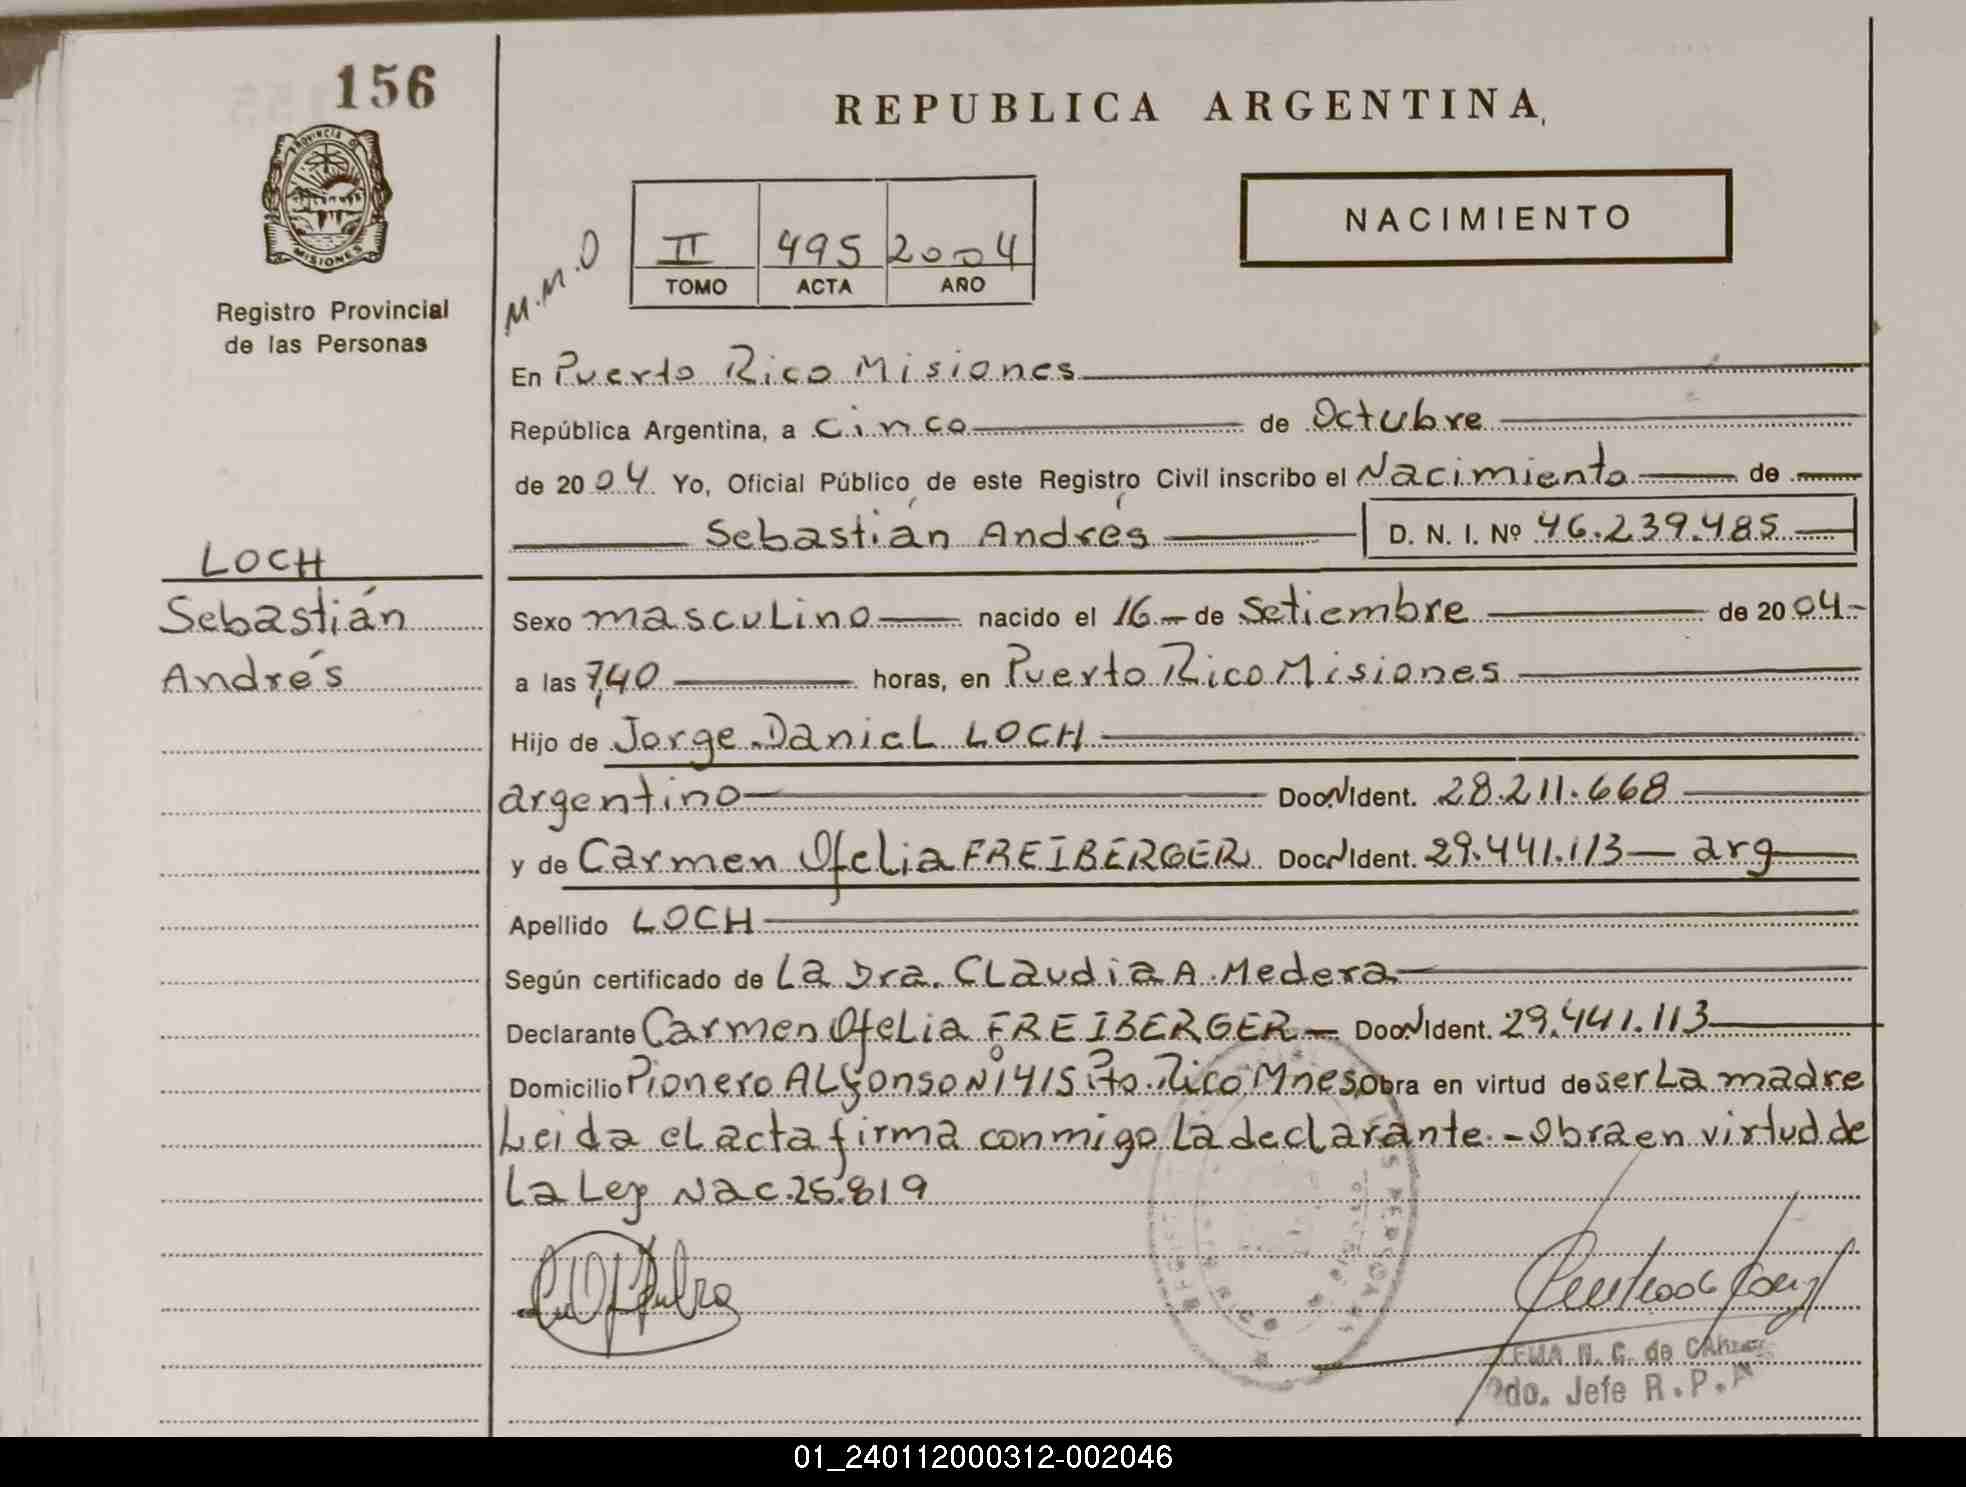 156
PROVINCIA DE
MISIONES
Registro Provincial
de las Personas
REPUBLICA ARGENTINA
NACIMIENTO
M.M.O
II 495 2004
TOMO ACTA AÑO
En Puerto Rico Misiones
República Argentina, a cinco de Octubre
de 2004 Yo, Oficial Público de este Registro Civil inscribo el Nacimiento de
Sebastián Andrés D. N. I. Nº 46.239.485
LOCH
Sebastián
Andrés
Sexo masculino nacido el 16 de Setiembre de 2004
a las 7,40 horas, en Puerto Rico Misiones
Hijo de Jorge Daniel LOCH
argentino Doc. N Ident. 28.211.668
y de Carmen Ofelia FREIBERGER Doc. N Ident. 29.441.113 arg
Apellido LOCH
Según certificado de La Dra. Claudia A. Medera
Declarante Carmen Ofelia FREIBERGER Doc. N Ident. 29.441.113
Domicilio Pionero Alfonso Nº 1415 Pto. Rico Mnes obra en virtud de ser La madre
Leida el acta firma conmigo la declarante.- Obra en virtud de
La Ley Nac. 25.819
N. C. de
Jefe R.P.
01_240112000312-002046